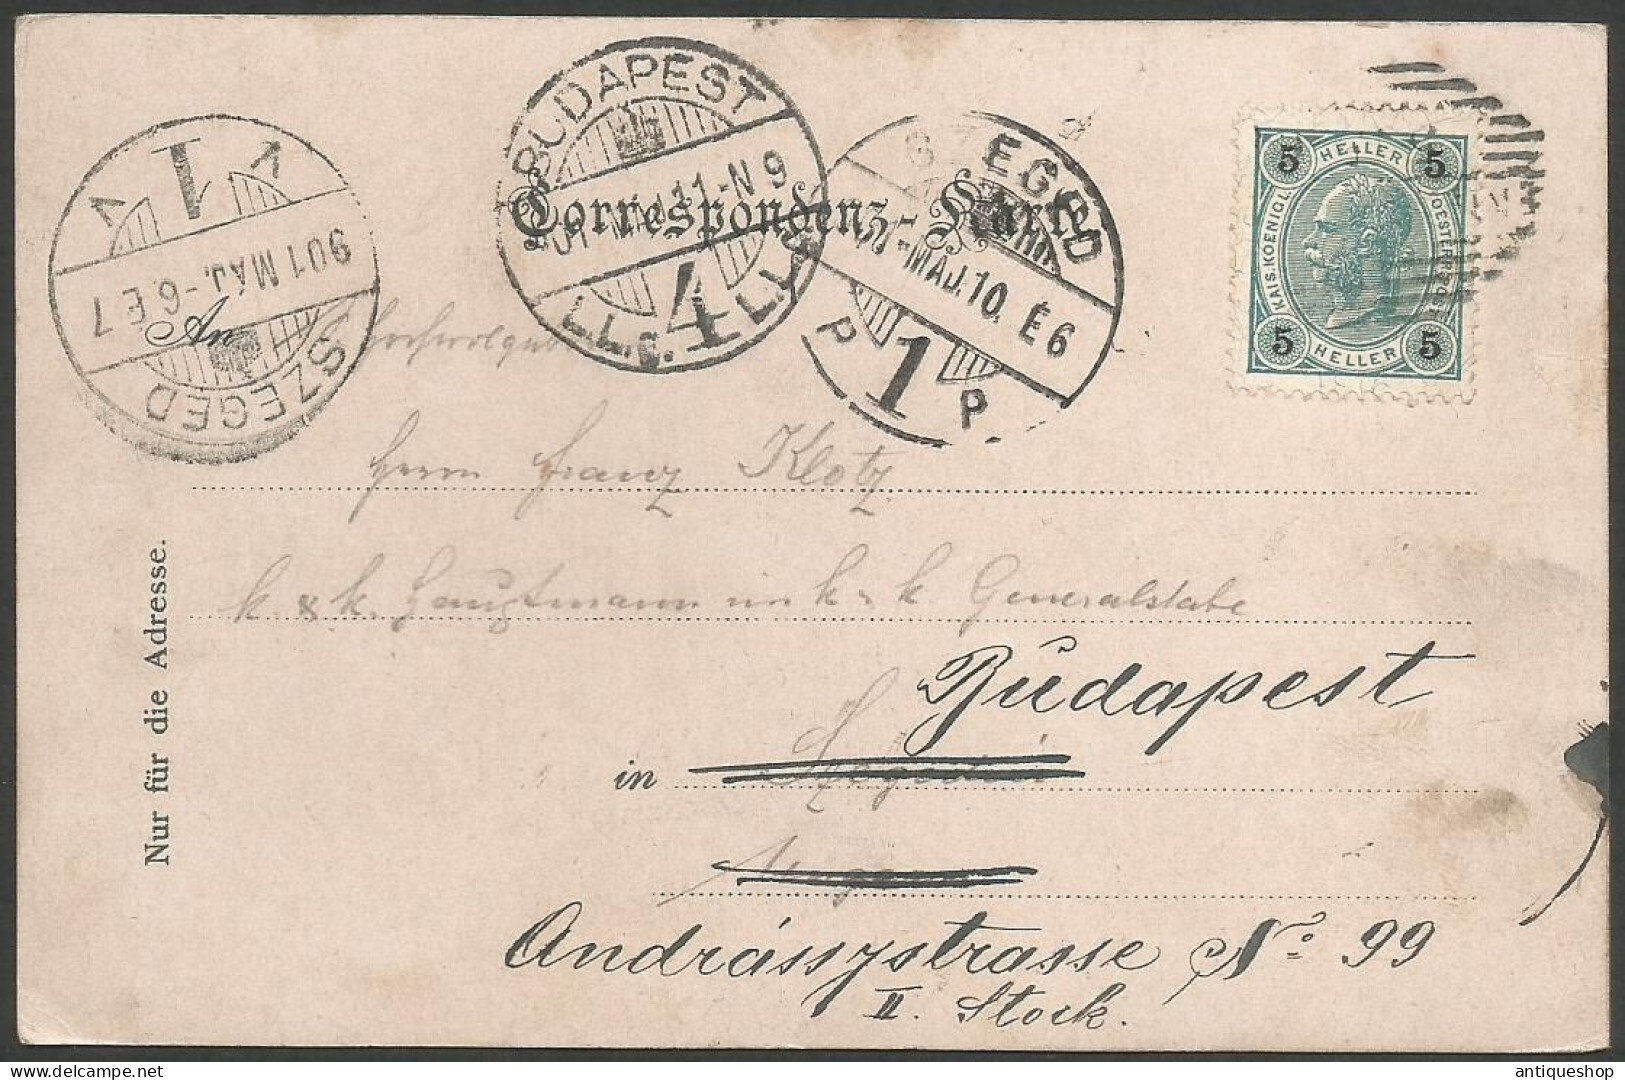 BUDAPEST
901 MÁJ. 11-N 9
4
SZEGED
901-MÁJ.10. É6
P 1 P
V 1 V
901 MÁJ.-6 E 7
SZEGED
5 HELLER 5
KAIS. KOENIGL. OESTERR. POST
5 HELLER 5
Correspondenz-Karte
An
Herrn Franz Klotz
k. & k. Hauptmann im k. & k. Generalstabe
Budapest
in Szegedin
Ungarn
Andrássystrasse No. 99
II. Stock.
Nur für die Adresse.
antiqueshop